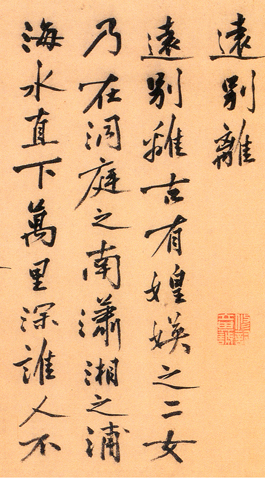 遠別離
遠別離古有媓媖之二女
乃在洞庭之南瀟湘之浦
海水直下萬里深誰人不